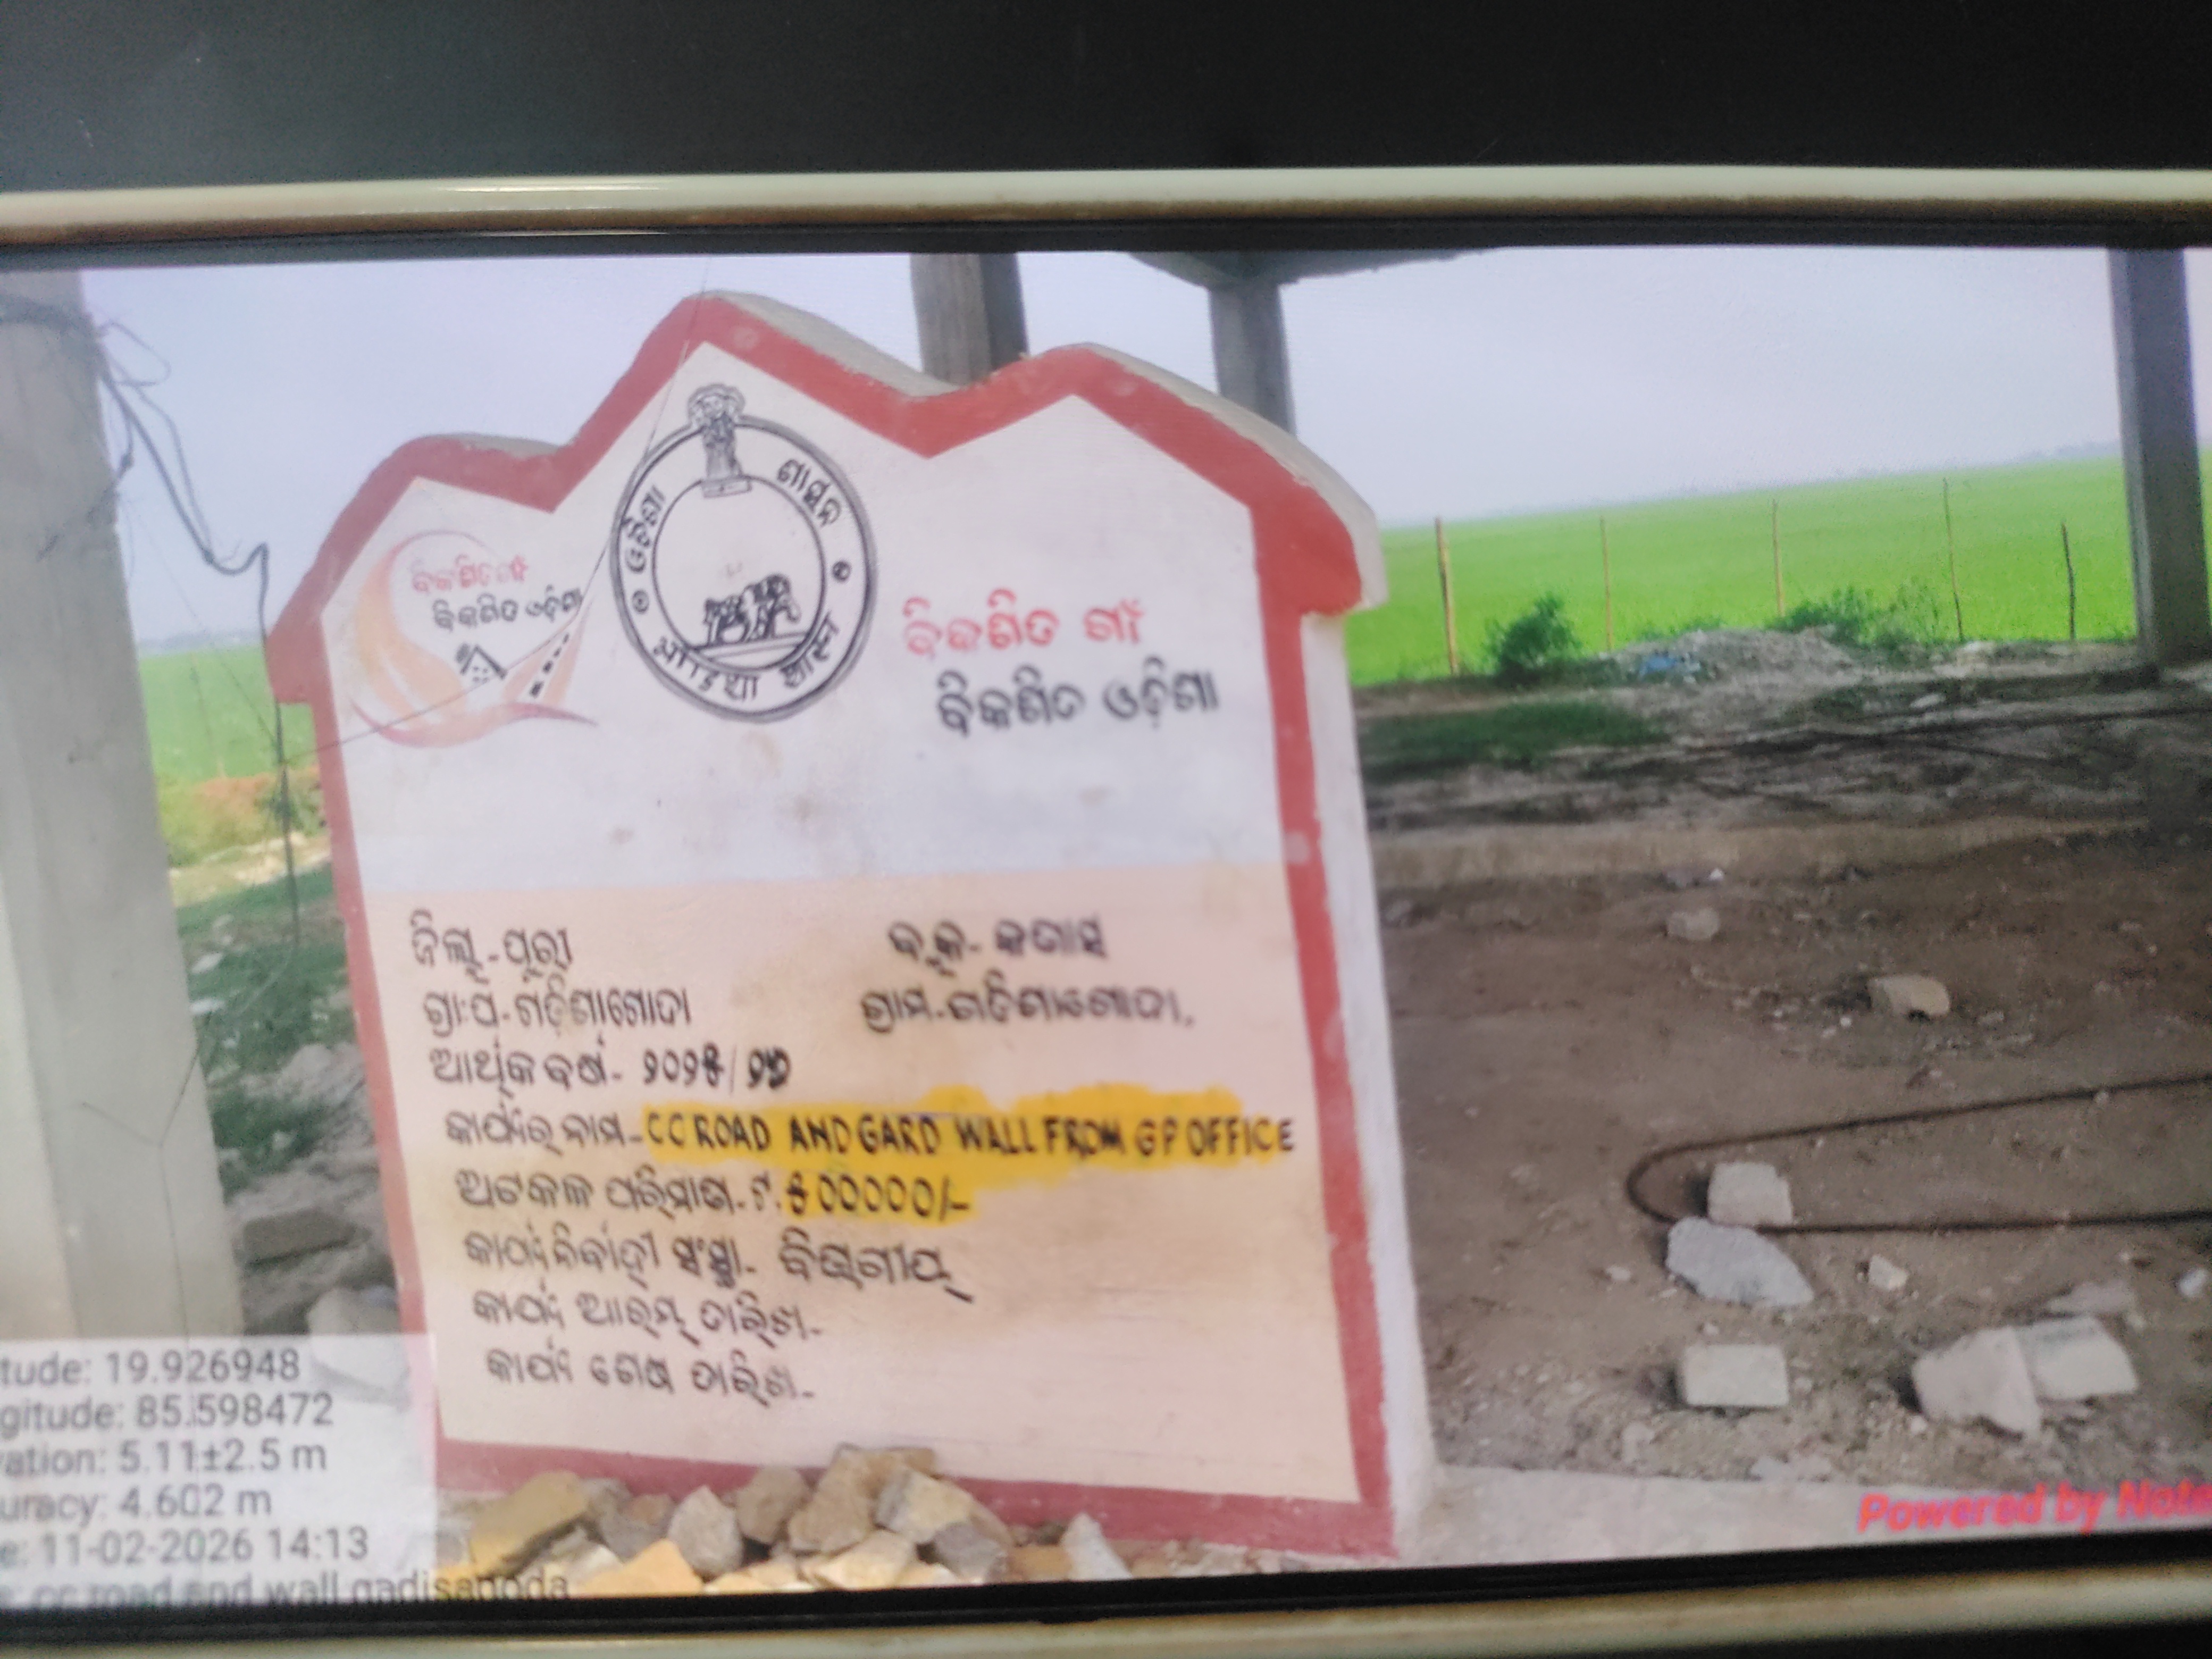 ବିକଶିତ ଗାଁ
ବିକଶିତ ଓଡ଼ିଶା
ଓଡ଼ିଶା ଶାସନ
ବିକଶିତ ଗାଁ
ବିକଶିତ ଓଡ଼ିଶା
ଜିଲ୍ଲା-ପୁରୀ ବ୍ଲକ- କଣାସ
ଗ୍ରା:ପ-ଗଡ଼ିଶାଗୋଦା ଗ୍ରାମ-ଗଡ଼ିଶାଗୋଦା,
ଆର୍ଥିକ ବର୍ଷ- ୨୦୨୫/୨୬
କାର୍ଯ୍ୟର ନାମ-CC ROAD AND GARD WALL FROM GP OFFICE
ଅଟକଳ ପରିମାଣ-ଟ.୫00000/-
କାର୍ଯ୍ୟନିର୍ବାହୀ ସଂସ୍ଥା- ବିଭାଗୀୟ
କାର୍ଯ୍ୟ ଆରମ୍ଭ ତାରିଖ-
କାର୍ଯ୍ୟ ଶେଷ ତାରିଖ-
tude: 19.926948
gitude: 85.598472
vation: 5.11±2.5 m
uracy: 4.602 m
e: 11-02-2026 14:13
: cc road and wall gadisagoda
Powered by Note